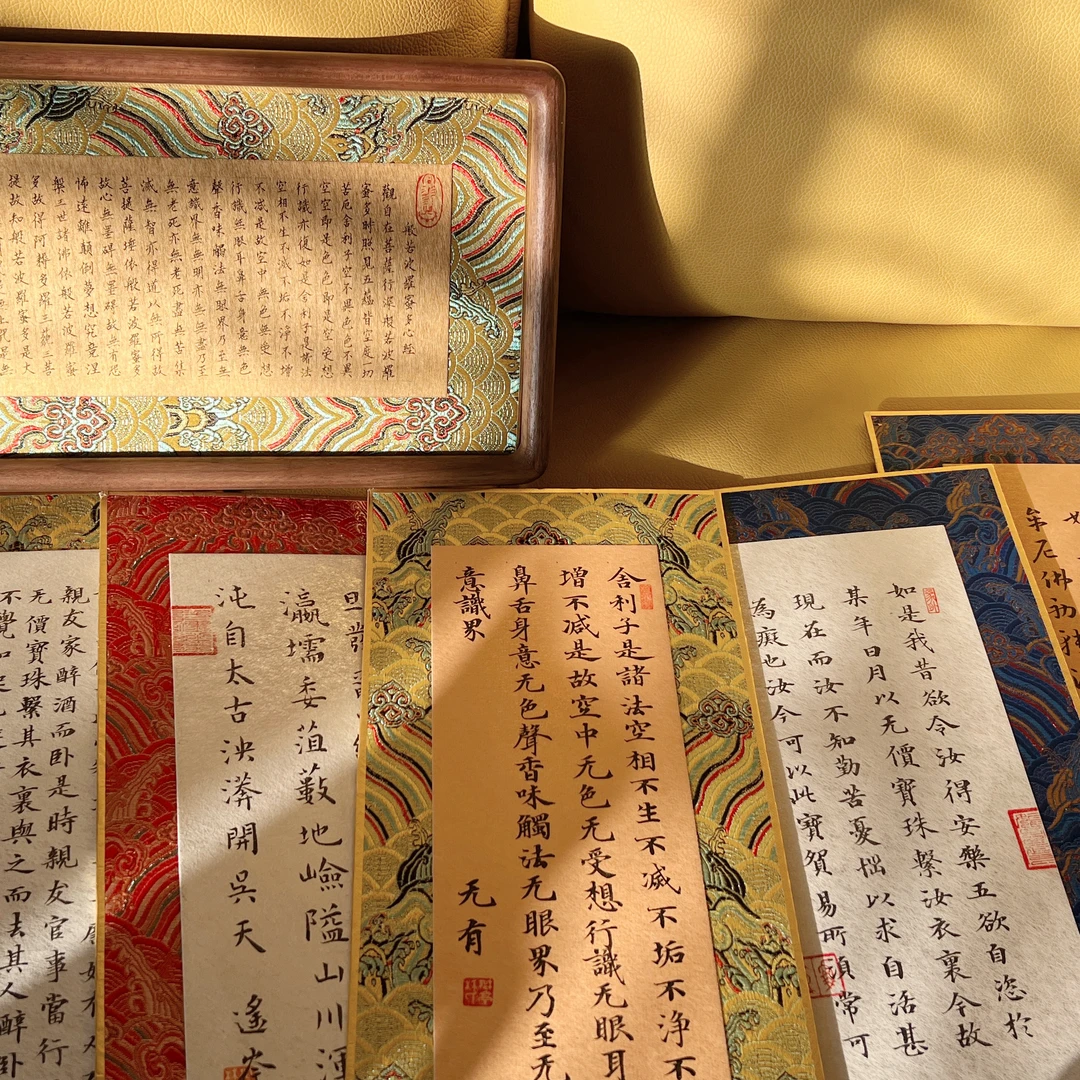 般若波羅蜜多心經
觀自在菩薩行深般若波羅
蜜多時照見五蘊皆空度一切
苦厄舍利子空不異色色不異
空空即是色色即是空受想
行識亦復如是舍利子是諸法
空相不生不滅不垢不淨不增
不减是故空中無色無受想
行識無眼耳鼻舌身意無色
聲香味觸法無眼界乃至無
意識界無無明亦無無盡乃至
無老死亦無老死盡無苦集
滅無智亦得道以無所得故
菩提薩埵依般若波羅蜜多
故心無罣礙無罣礙故無有恐
怖遠離顛倒夢想究竟涅
槃三世諸佛依般若波羅蜜
多故得阿耨多羅三藐三菩
提故知般若波羅蜜多是大
牟尼佛初
如是我昔欲令汝得安樂五欲自恣於
某年日月以无價寶珠繫汝衣裏今故
現在而汝不知勤苦憂惱以求自活甚
為癡也汝今可以此寶貿易所須常可
舍利子是諸法空相不生不滅不垢不净不
增不减是故空中无色无受想行識无眼耳
鼻舌身意无色聲香味觸法无眼界乃至无
意識界
无有
瀛壖委菹藪地嶮隘山川渾
沌自太古泱漭開吳天
遙岑
親友家醉酒而卧是時親友官事當行
无價寶珠繫其衣裏與之而去其人醉卧